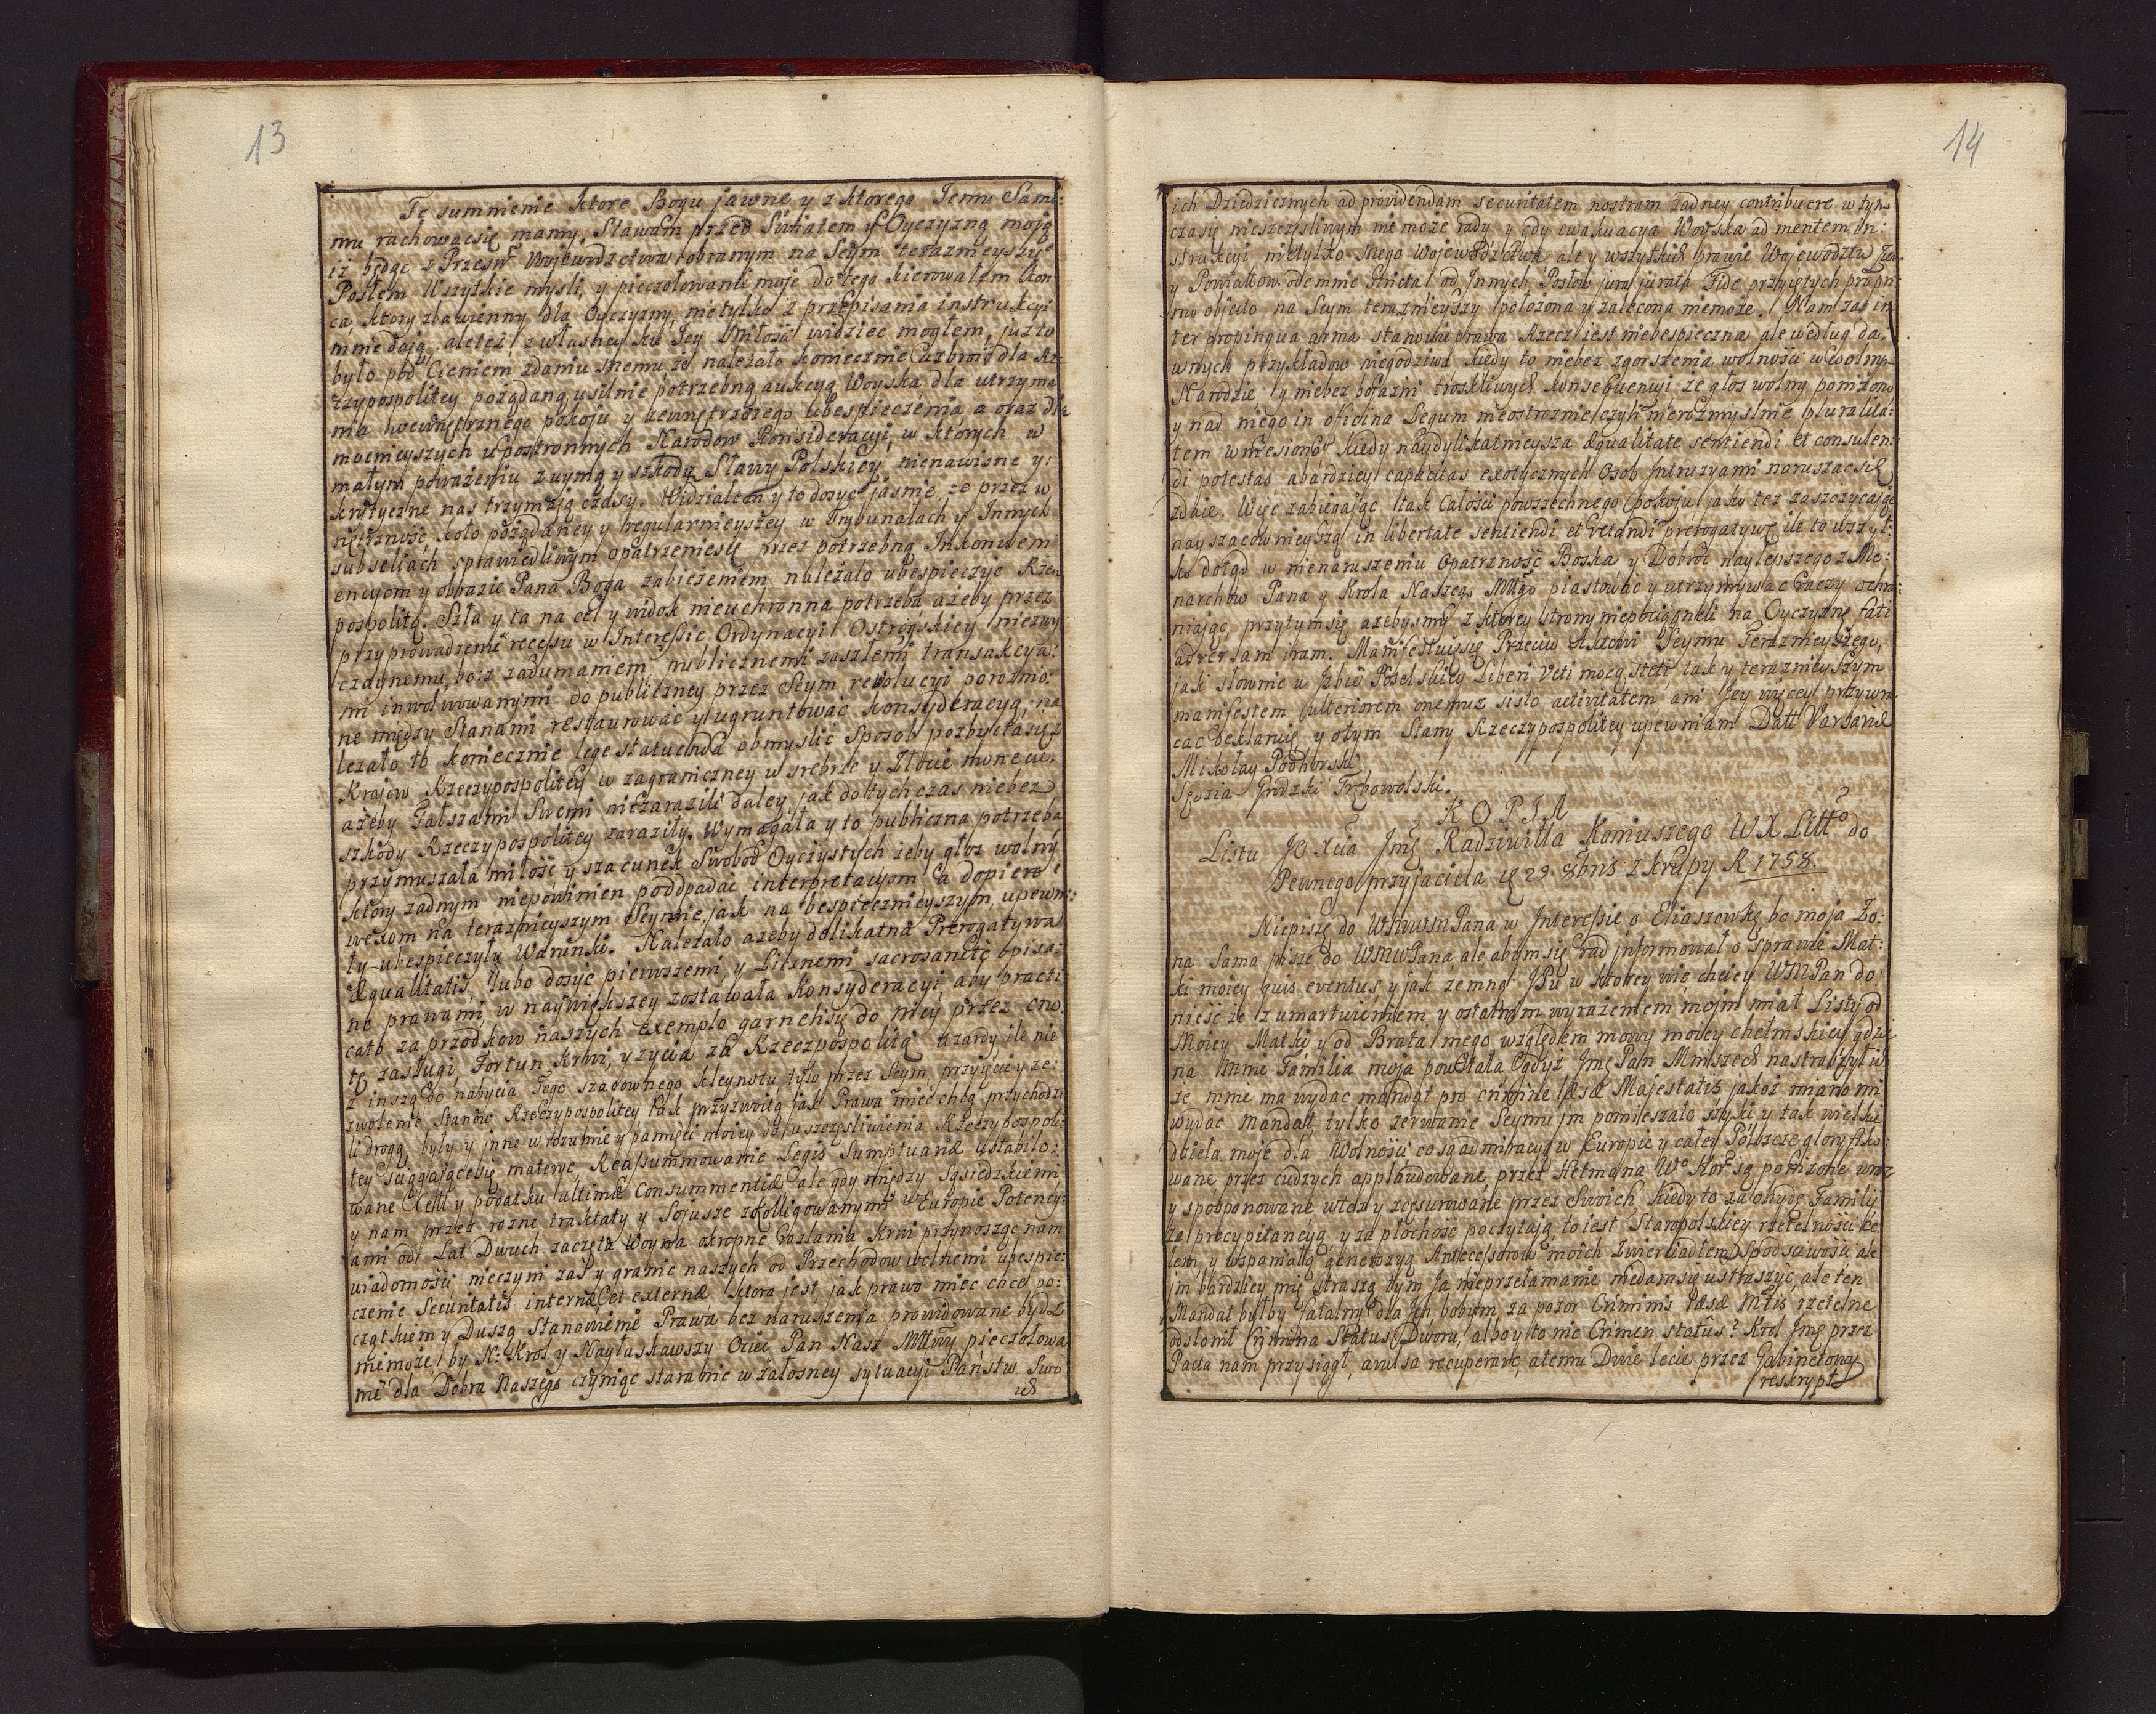 13
Te sumnienie ktore Bogu jawne y z ktorego Temu Same:
mu rachowaćsię mamy, Stawam przed Swiatem y Oyczyzną moją
iż będąc z Przesw: Wojewodztwa obranym na Seym teraznieyszy
Posłem Wszytkie mysli, y pieczołowanie moje do tego kierowałem kon:
ca ktory zbawienny dla Oyczyzny, nietylko z przepisania instrukcyi
mnie daią, ale też z własney ku Jey Miłości widzieć mogłem, już to
było pod Cieniem zdaniu memu że należało koniecznie dla Rz:
czypospolitey pożądaną usilnie potrzebną aukcyą Woyska dla utrzyma
nia wewnętrznego pokoju y zewnętrznego ubespieczenia a oraz dla
mocnieyszych upostronnych Narodow Konsideracyi, w ktorych w
małym poważeniu z uymą y szkodą Sławy Polskiey nienawisne y:
krytyczne nas trzymają czasy. Widziałem y to dosyć jasnie, że przez w
nętrzność koło pożądaney y regularnieyszey w Trybunałach y Innych
subseliach sprawiedliwym opatrzeniesię przez potrzebną Inkonwen
encyom y obrazie Pana Boga zabieżeniem należało ubespieczyc Rze:
pospolitą. Szła y ta na cel y widok nieuchronna potrzeba ażeby przez
przyprowadzenie recessu w Interessie Ordynacyi Ostrogskiey niezwy
czaynemu, bo z zadumaniem publicznemi zaszłemi transakcya:
mi inwolwowanymi do publiczney przez Seym rewolucyi porożnio:
ne między Stanami restaurować y ugruntować konsyderacyą, na
leżało to koniecznie lege statuenda obmyslic sposob pozbyciasię z
Krajow Rzeczypospolitey w zagraniczney w srebrze y Złocie monecie.
ażeby Fałszami Swemi niezaraziłi daley jak dotychczas niebez
szkody Rzeczypospolitey zaraziły. Wymagała y to publiczna potrzeba
przymuszała miłość y szacunek Swobod Oyczystych żeby głos wolny
ktory żadnym niepowinien poddpadać interpretacyom a dopiero
wexom na teraznieyszym Seymie, jak na bespiecznieyszym, upewni:
ły ubespieczyły Warunki. Należało ażeby delikatna Prerogatywa
Æqualitatis, lubo dosyć pierwszemi, y Licznemi sacrosancte opisa:
no prawami, w największey zostawała Konsyderacyi, aby practi
cato za przodkow naszych exemplo garnęlisię do niey przez cno:
tę zasługi, Fortun Krwi, y życia za Rzeczpospolitą hazardy ile nie
z inszą do nabycia Tego szacownego kleynotu tylo przez Seym przyięcie y ze:
zwolenie Stanow Rzeczypospolitey tak przyzwoitą jak Prawa mieć chcą przychodzi
li drogą, były y inne w rozumie y pamięci moiey do uszczęsliwienia Rzeczypospoli
tey sciągającesię materye, Reassummowanie Legis Sumptuariæ ustabilo:
wane Cełł y podatku ultimæ Consummentiæ ale gdy między Sąsiedzkiemi
y nam przez rożne traktaty y Sojusze zkolligowanymi w Europie Potency:
ami od Lat Dwuch zaczęta Woyna okropne rozlania Krwi przynosząc nam
wiadomości nieczyni zaś y granic naszych od Przechodow wolnemi ubespie:
czenie Securitatis internæ et externæ ktora jest jak prawo miec chce po:
czątkiem y Duszą Stanowienie Prawa bez naruszenia prowidowane bydz
niemoże, by N: Krol y Nayłaskawszy Ociec Pan Nasz Mttwy pieczołowa
nie dla Dobra Naszego czyniąc staranie w żałosney sytuacyi Państw Swo
ich
14
ich Dziedzicznych ad providendam securitatem nostram żadney contribuere w tym
czasię nieszczesliwym nie może rady y gdy ewakuacya Woyska ad mentem In:
strukcyi nietylko mego Wojewodztwa ale y wszytkich prawie Wojewodztw Ziem
y Powiatow odemnie stricta od Innych Posłow jura jurata Fide przyiętych pro pri
mo objecto na Seym teraznieyszy położona y zalecona niemoże. Nam zaś in
ter propinqua arma stanowić prawa Rzecz iest niebespieczna, ale według da:
wnych przykładow niegodziwa kiedy to niebez zgorszenia wolności w Wolnym
Narodzie y niebez bojazni troskliwych konsequencyi, ze głos wolny pomiono
y nad niego in officina Legum nieostrożnie, czyli nierozmyslnie plurilita:
tem wniesiono? Kiedy naydylikatnieysza æqualitate sentiendi et consulen:
di potestas, abardziey capacitas exotycznych Osob Intruzyami naruszacsię
zdaie. Więc zabiegając tak Całosci powszechnego pokoju jako też zaszczycającą
nayszacownieyszą in libertate sentiendi et vetandi prerogatywę ile to wszyt:
ko dotąd w nienaruszeniu Opatrzność Boska y Dobroć naylepszego z Mo:
narchow Pana y Krola Naszego Mttgo piastować y utrzymywać raczy ochra:
niając, przytymsię ażebysmy z ktorey strony niepociągneli na Oyczyznę fati
adversam iram. Manifestuięsię Przeciw Aktowi Seymu Teraznieyszego,
jak słownie w Izbie Poselskiey Liberi Veti mocą stett tak y teraznieyszym
manifestem ulteriorem onemuz sisto activitatem ani Jey więcey przywra
cać deklaruię y otym Stany Rzeczypospolitey upewniam Datt Varsaviæ
Mikołay Podhorski
Sędzia Grodzki Trębowolski.
KOPIA
Listu JO Xcia Jmę Radziwiłła Koniuszego WX Litto do
Pewnego przyjaciela q 29 8bris z Krepy R 1758.
Niepiszę do WMWMPana w Interessie o Eliaszowkę bo moja Żo:
na sama pisze do WMWPana, ale abymsię rad informował o sprawie Mat:
ki moiey quis eventus y jak zemną IPu w ktorey nie chciey WMPan do:
nieść że z umartwieniem y ostatnim wyrażeniem mojm miał Listy od
Moiey Matki y od Brata mego względem mowy moiey chełmskiey, gdzie
na mnie Familia moja powstała Ogdyż Jmę Pan Mniszech nastraszył ich
że mnie ma wydać mandat pro crimine læsæ Majestatis jakoż miano mi
wydać Mandatt, tylko zerwanie Seymu im pomieszało szyki y tak wielkie
dzieła moje dla Wolności co są admiracyą w Europie y całey Polszcze gloryfiko:
wane, przez cudzych applaudowane, przez Hetmana Wo Kor: są poniżone uraz
y sposponowane, widzę zcęsurowane przez Swoich, kiedy to za ohydę Familij
za precypitancyą, y za płochość poczytają, to iest Staropolskiey rzetelności ce:
lem, y wspaniałą generozyą Antecessorow moich zwierciadłem Spodsciwości ale
im bardziey mię straszą tym Ja nieprzełamanie niedamsię ustraszyć, ale ten
Mandat byłby fatalny dla Ich bobym za pozor Criminis læsæ Mtis rzetelne
odsłonił Crimina Status Dworu, alboy to nie Crimen statûs? Krol Jmę przez
Pacta nam przysiągł, avulsa recuperare, atemu Dwie lecie przez Gabinetowy
reskrypt